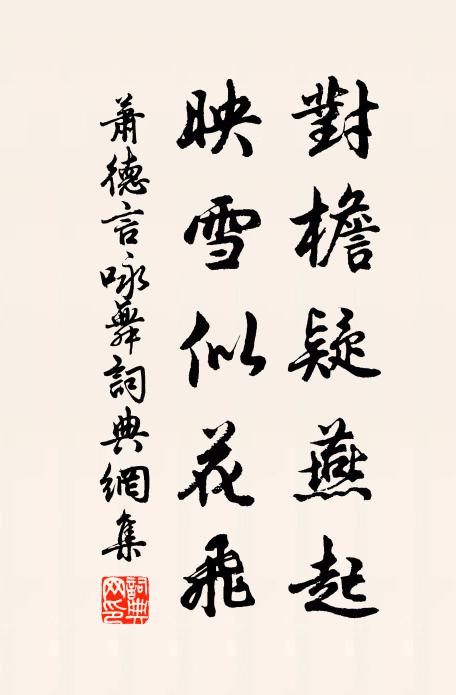 對檐疑燕起
映雪似花飛
蕭德言咏舞詞典網集
詞典網印